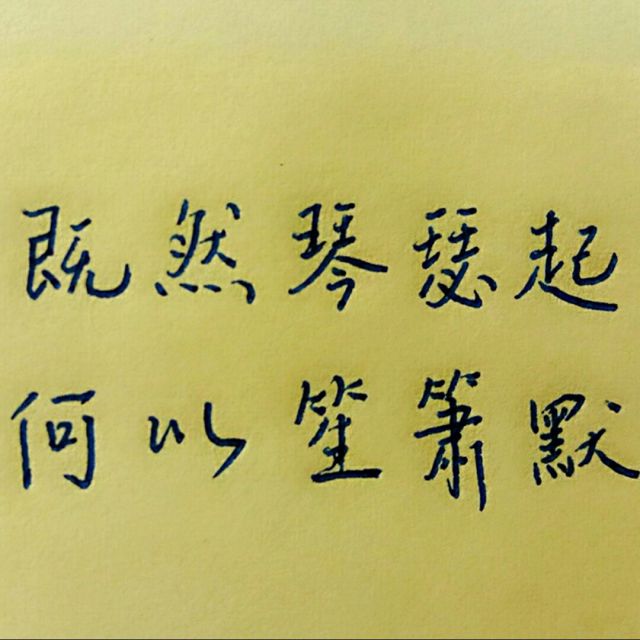 既然琴瑟起
何以笙簫默